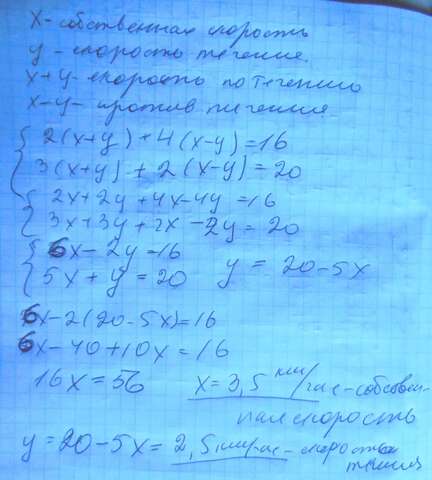 x - собственная скорость
y - скорость течения.
x+y - скорость по течению
x-y - против течения
{ 2(x+y)+4(x-y)=16
3(x+y)+2(x-y)=20
{ 2x+2y+4x-4y=16
3x+3y+2x-2y=20
{ 6x-2y=16
5x+y=20 y=20-5x
6x-2(20-5x)=16
6x-40+10x=16
16x=56 x=3,5 км/час - собствен-
ная скорость
y=20-5x=2,5 км/час - скорость
течения